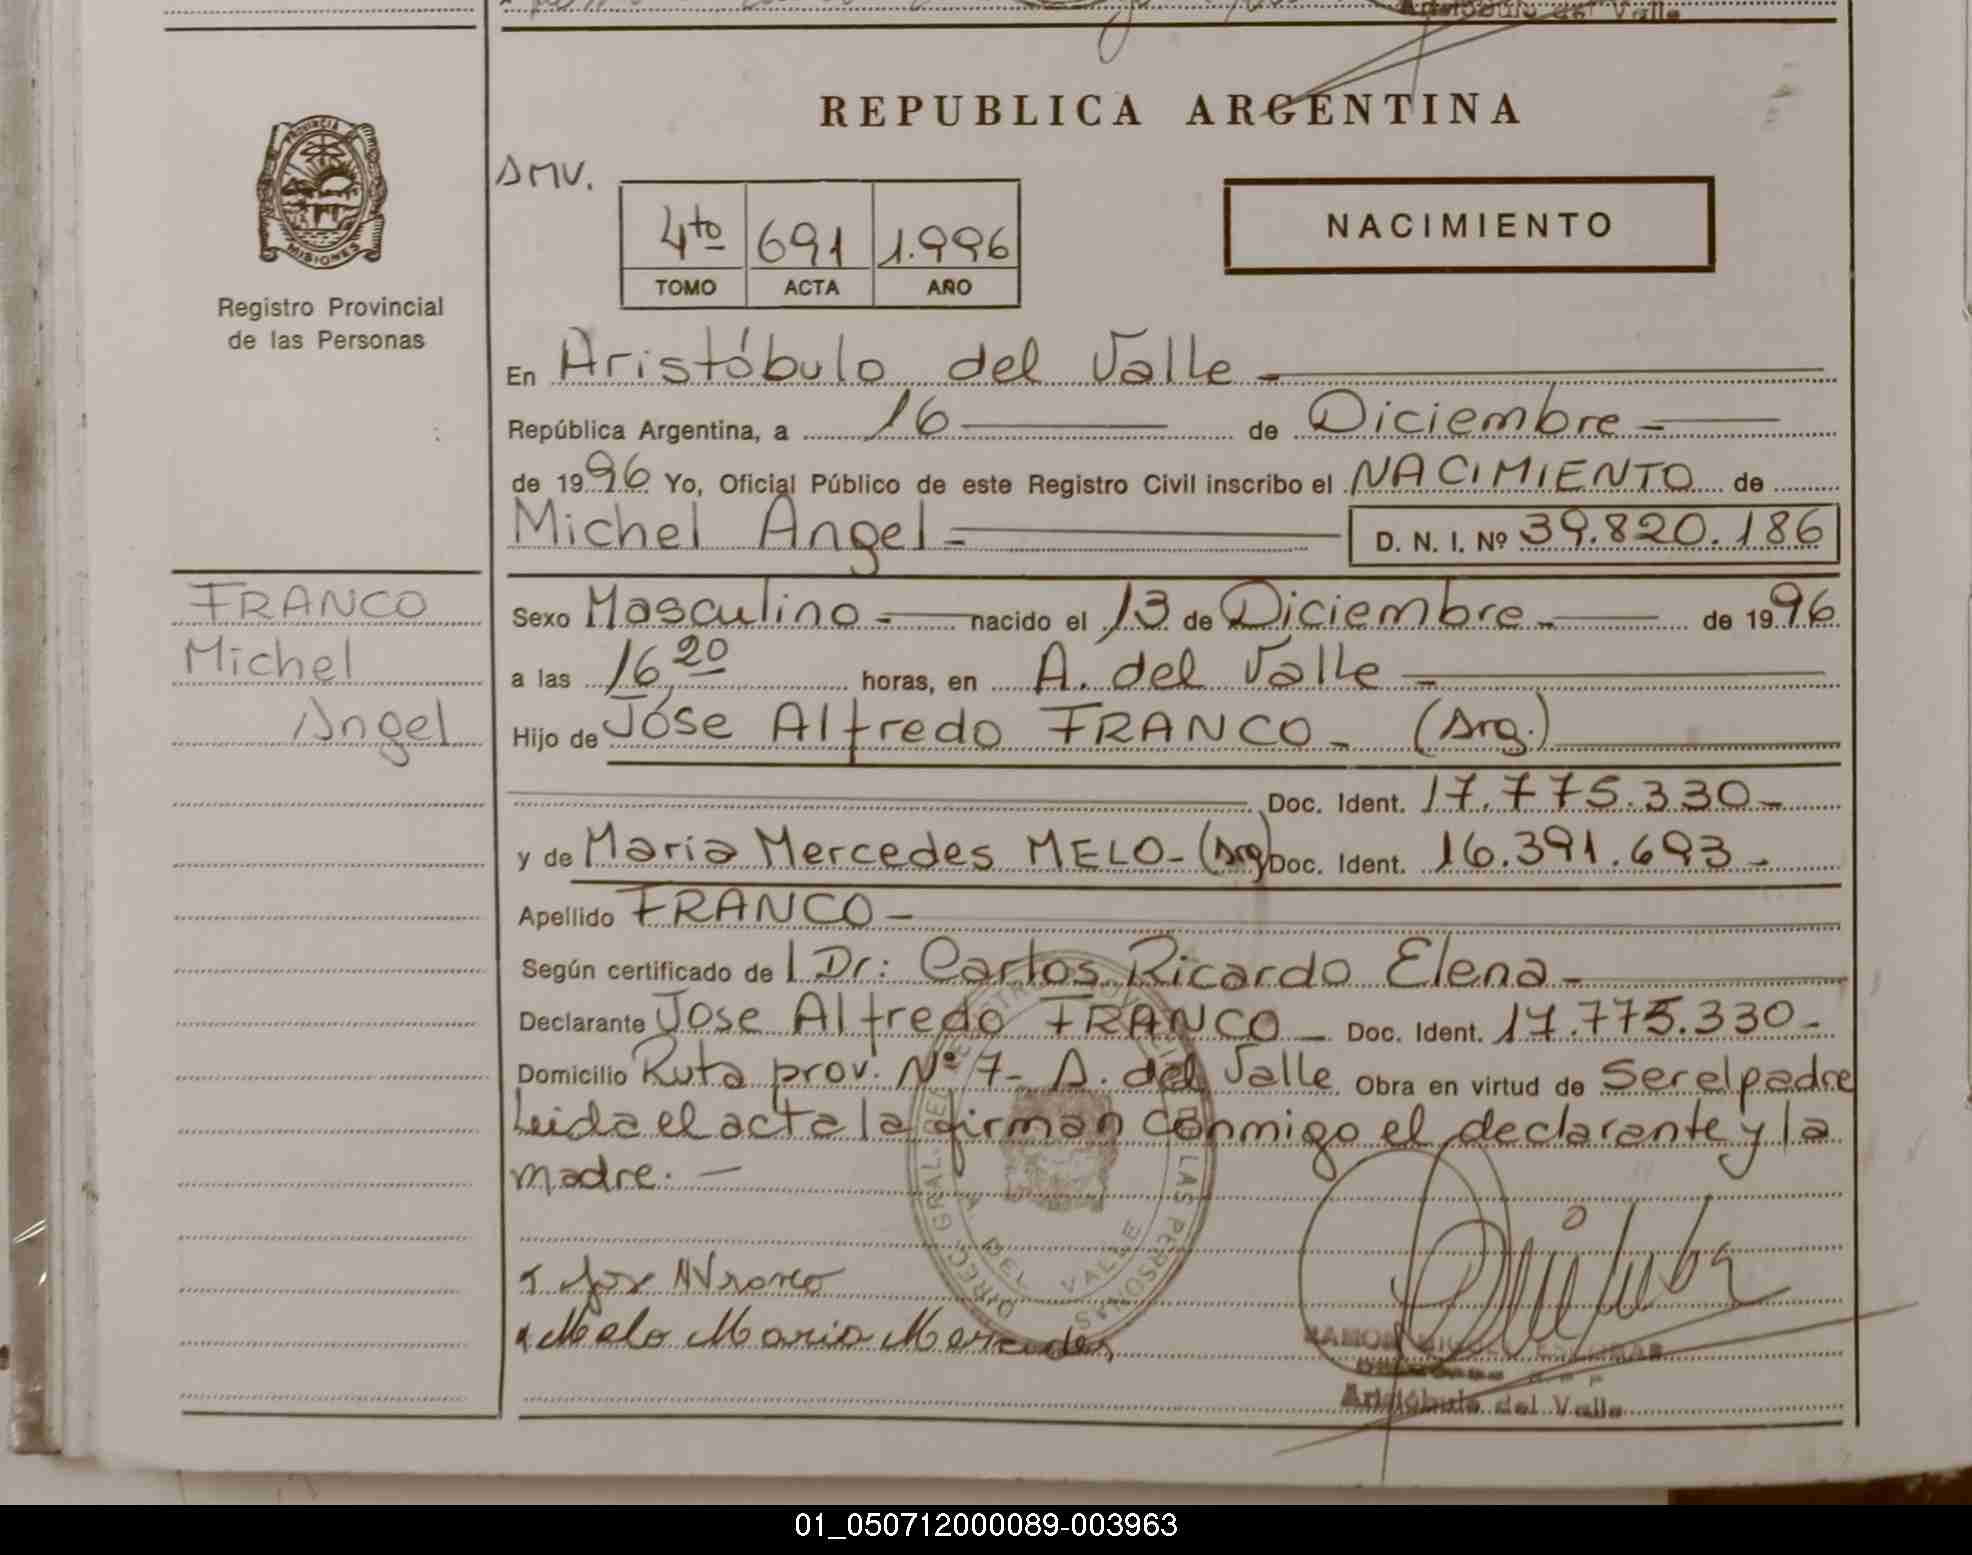 Aristóbulo del Valle
REPUBLICA ARGENTINA
PROVINCIA DE
MISIONES
Registro Provincial
de las Personas
AMV.
4to 691 1.996
TOMO ACTA AÑO
NACIMIENTO
En Aristóbulo del Valle -
República Argentina, a 16 de Diciembre -
de 1996 Yo, Oficial Público de este Registro Civil inscribo el NACIMIENTO de
Michel Angel - D. N. I. Nº 39.820.186
FRANCO
Michel
Angel
Sexo Masculino - nacido el 13 de Diciembre - de 1996
a las 16,20 horas, en A. del Valle -
Hijo de José Alfredo FRANCO - (Arg.)
Doc. Ident. 17.775.330 -
y de Maria Mercedes MELO - (Arg) Doc. Ident. 16.391.693 -
Apellido FRANCO -
Según certificado de Dr: Carlos Ricardo Elena -
Declarante Jose Alfredo FRANCO - Doc. Ident. 17.775.330 -
Domicilio Ruta prov. Nº 7 - A. del Valle Obra en virtud de Ser el padre
Leida el acta la firman conmigo el declarante y la
madre. -
DIREC. GRAL. DEL REGISTRO PROVINCIAL DE LAS PERSONAS
A. DEL VALLE
Melo Maria Mercedes
RAMON MIGUEL ESCOBAR
Aristóbulo del Valle
01_050712000089-003963